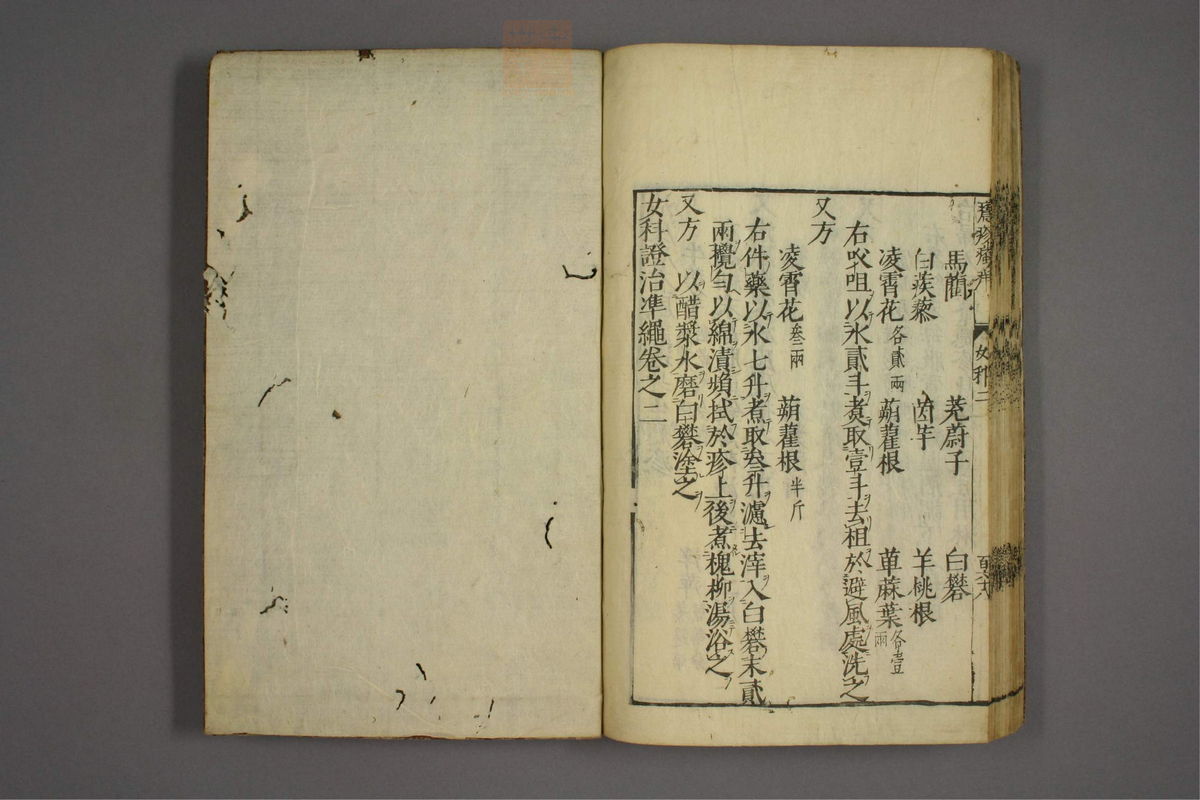 女科二
百六十八
馬藺 茺蔚子 白礬
白蒺藜 茵芋 羊桃根
凌霄花各貳兩 蒴藋根 萆蔴葉各壹兩
右㕮咀以水貳斗煑取壹斗去柤於避風處洗之
又方
凌霄花叁兩 蒴藋根半斤
右件藥以水七升煮取叁升濾去滓入白礬末貳
兩攪勻以綿漬頻拭於疹上後煮槐柳湯浴之
又方 以醋漿水磨白礬塗之
女科證治準繩卷之二